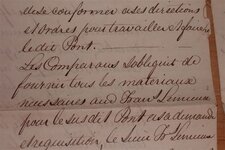 et de se conformer a ses directions
et ordres pour travailler & faire
le dit Pont.
Les Comparans s'obligent de
fournir tous les materiaux
necessaires aud. Frans Lemieux
pour le susdit Pont a sa demande
et requisition, le Sieur Fr Lemieux